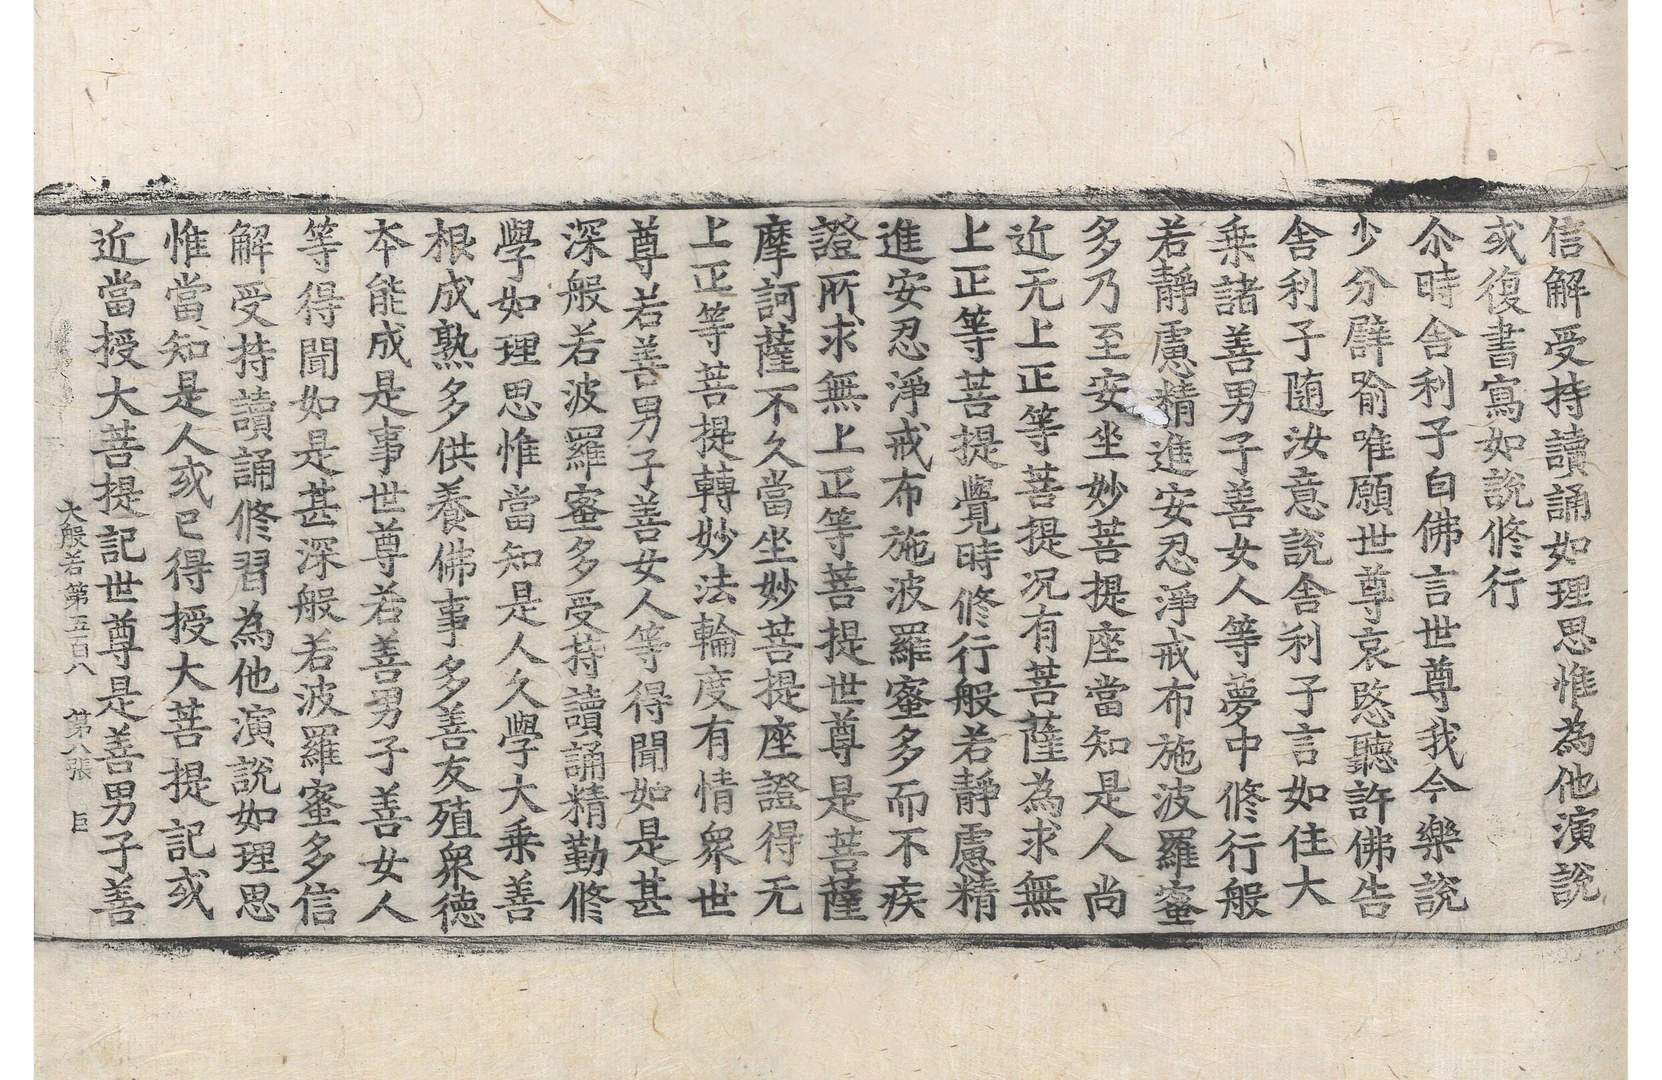 信解受持讀誦如理思惟為他演說
或復書寫如說修行
尒時舎利子白佛言世尊我今樂說
少分譬喻唯願世尊哀愍聽許佛告
舎利子随汝意說舎利子言如住大
乗諸善男子善女人等夢中修行般
若靜慮精進安忍淨戒布施波羅蜜
多乃至安坐妙菩提座當知是人尚
近无上正等菩提况有菩薩為求無
上正等菩提覺時修行般若靜慮精
進安忍淨戒布施波羅蜜多而不疾
證所求無上正等菩提世尊是菩薩
摩訶薩不久當坐妙菩提座證得无
上正等菩提轉妙法輪度有情衆世
尊若善男子善女人等得聞如是甚
深般若波羅蜜多受持讀誦精勤修
學如理思惟當知是人久學大乗善
根成熟多供養佛事多善友殖衆德
本能成是事世尊若善男子善女人
等得聞如是甚深般若波羅蜜多信
解受持讀誦修習為他演說如理思
惟當知是人或已得授大菩提記或
近當授大菩提記世尊是善男子善
大般若第五百八 第八張 巨